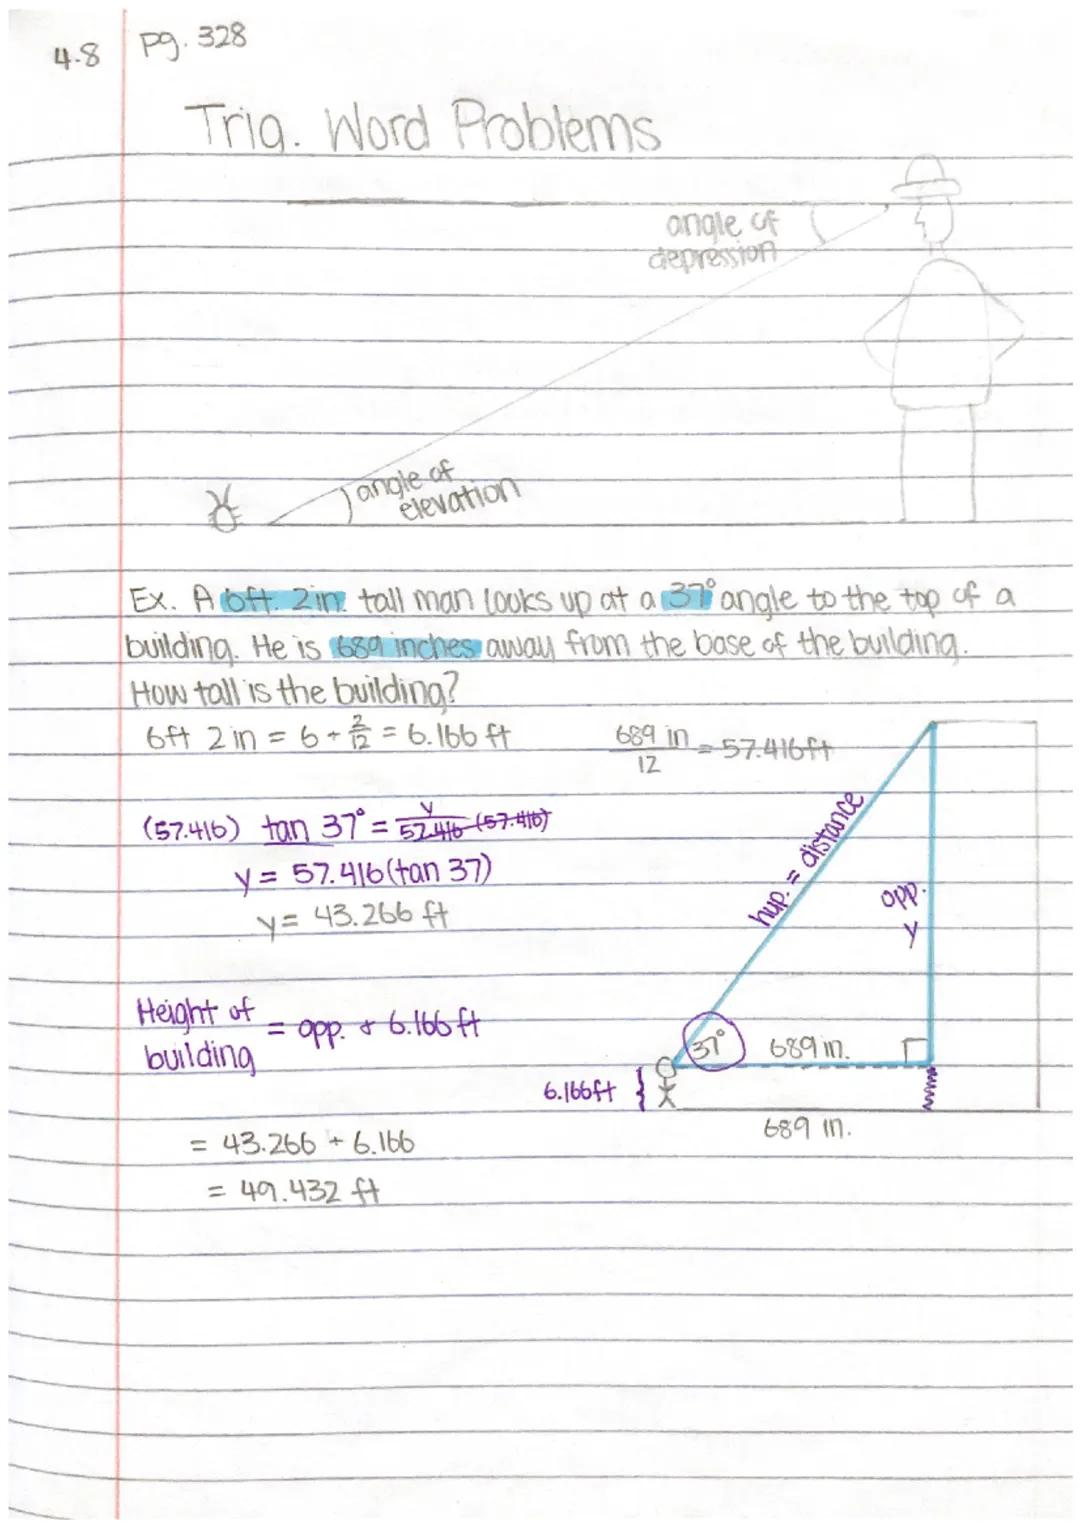 4.8 pg. 328
Trig. Word Problems
angle of
depression
angle of
elevation
Ex. A 6ft. 2in. tall man looks up at a 37° angle to the top of a
building. He is 689 inches away from the base of the building.
How tall is the building?
6ft 2in = 6 + 2/12 = 6.166 ft
689 in / 12 = 57.416ft
(57.416) tan 37° = y/57.416 (57.416)
y = 57.416(tan 37)
y = 43.266 ft
hyp. = distance
opp.
y
Height of
building = opp. + 6.166 ft
37° 689 in.
6.166ft }
689 in.
= 43.266 + 6.166
= 49.432 ft